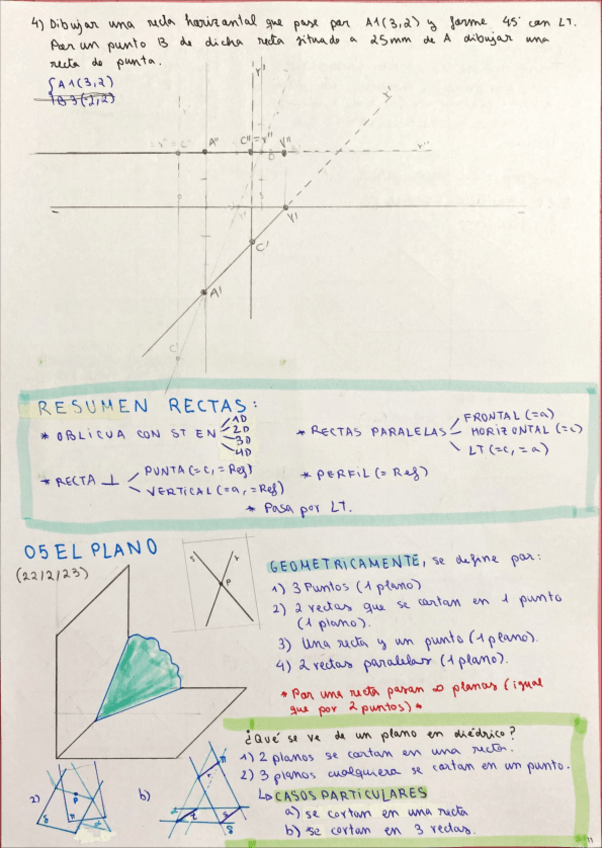 4) Dibujar una recta horizontal que pase por A1(3,2) y forme 45° con LT.
Por un punto B de dicha recta situado a 25mm de A dibujar una
recta de punta.
A1(3,2)
B3(-2,2)
r'
r'
A"
C"≡r"
V"
V'
C'
A'
C
RESUMEN RECTAS:
* OBLICUA CON ST EN
1D
2D
3D
4D
* RECTAS PARALELAS
FRONTAL (=a)
HORIZONTAL (=c)
LT (=c, =a)
* RECTA ⊥
PUNTA (=c, =Ref)
VERTICAL (=a, =Ref)
* PERFIL (= Ref)
* Pasa por LT.
05 EL PLANO
(22/2/23)
s
r
P
GEOMETRICAMENTE, se define por:
1) 3 Puntos (1 plano)
2) 2 rectas que se cortan en 1 punto
(1 plano).
3) Una recta y un punto (1 plano).
4) 2 rectas paralelas (1 plano).
* Por una recta pasan ∞ planos (igual
que por 2 puntos) *
¿Qué se ve de un plano en diédrico?
1) 2 planos se cortan en una recta.
2) 3 planos cualquiera se cortan en un punto.
↳ CASOS PARTICULARES
a) se cortan en una recta
b) se cortan en 3 rectas.
2)
P
b)
11